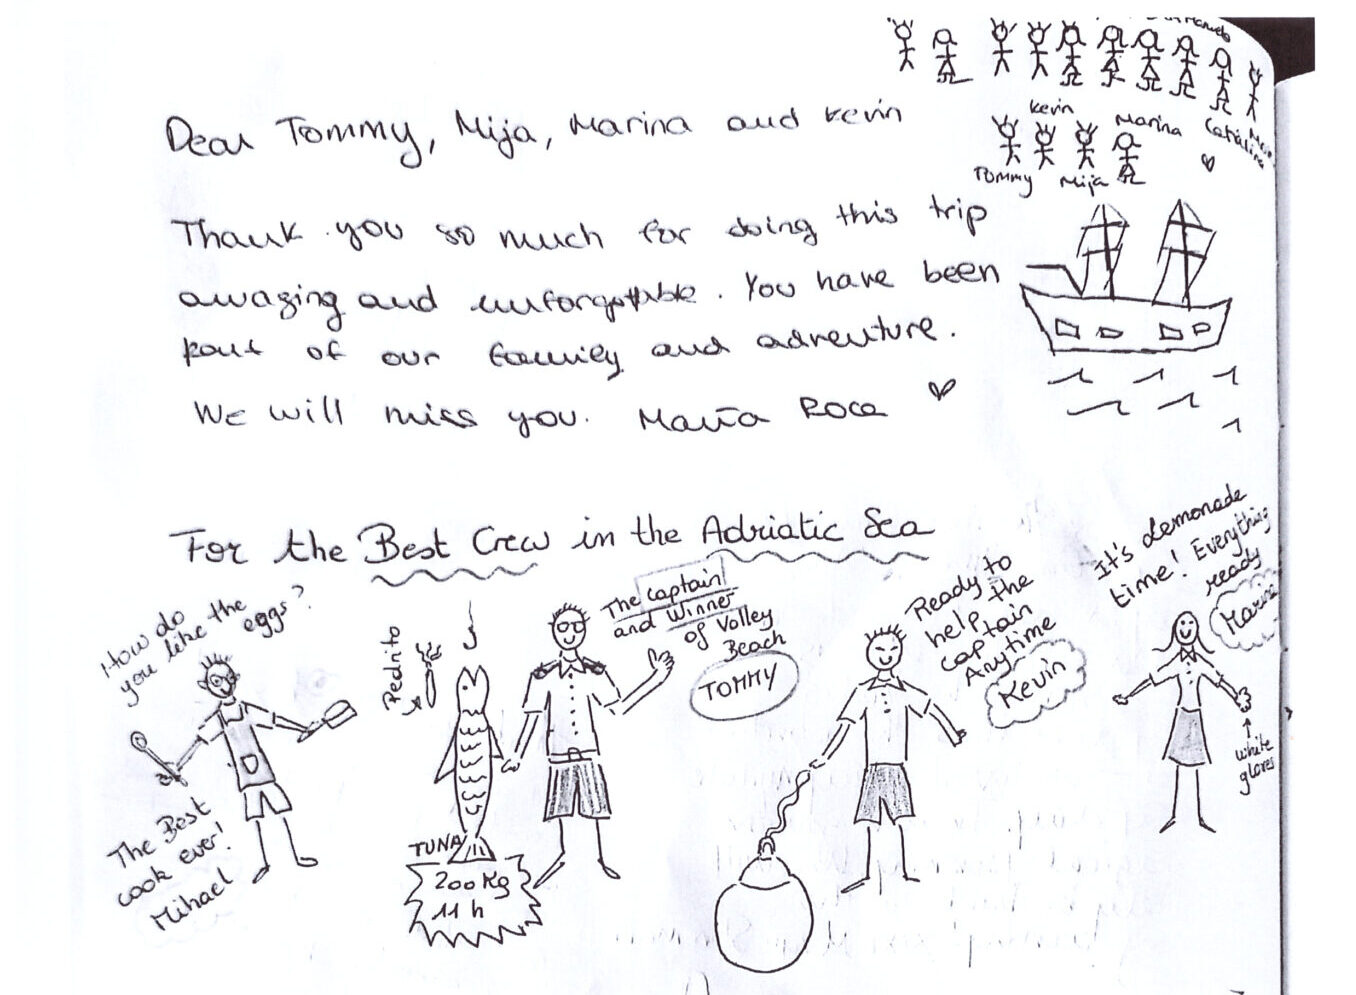 Kevin
Marina
Catalina
Tommy
Mija
Dear Tommy, Mija, Marina and Kevin
Thank you so much for doing this trip
amazing and unforgettable. You have been
part of our family and adventure.
We will miss you. María Roca
For the Best Crew in the Adriatic Sea
How do
you like the
eggs?
The Best
cook ever!
Mihael
Pedrito
TUNA
200 Kg
11 h
The captain
and Winner
of Volley
Beach
TOMMY
Ready to
help the
captain
Anytime
Kevin
It's lemonade
time! Everything
ready
Marina
white
gloves